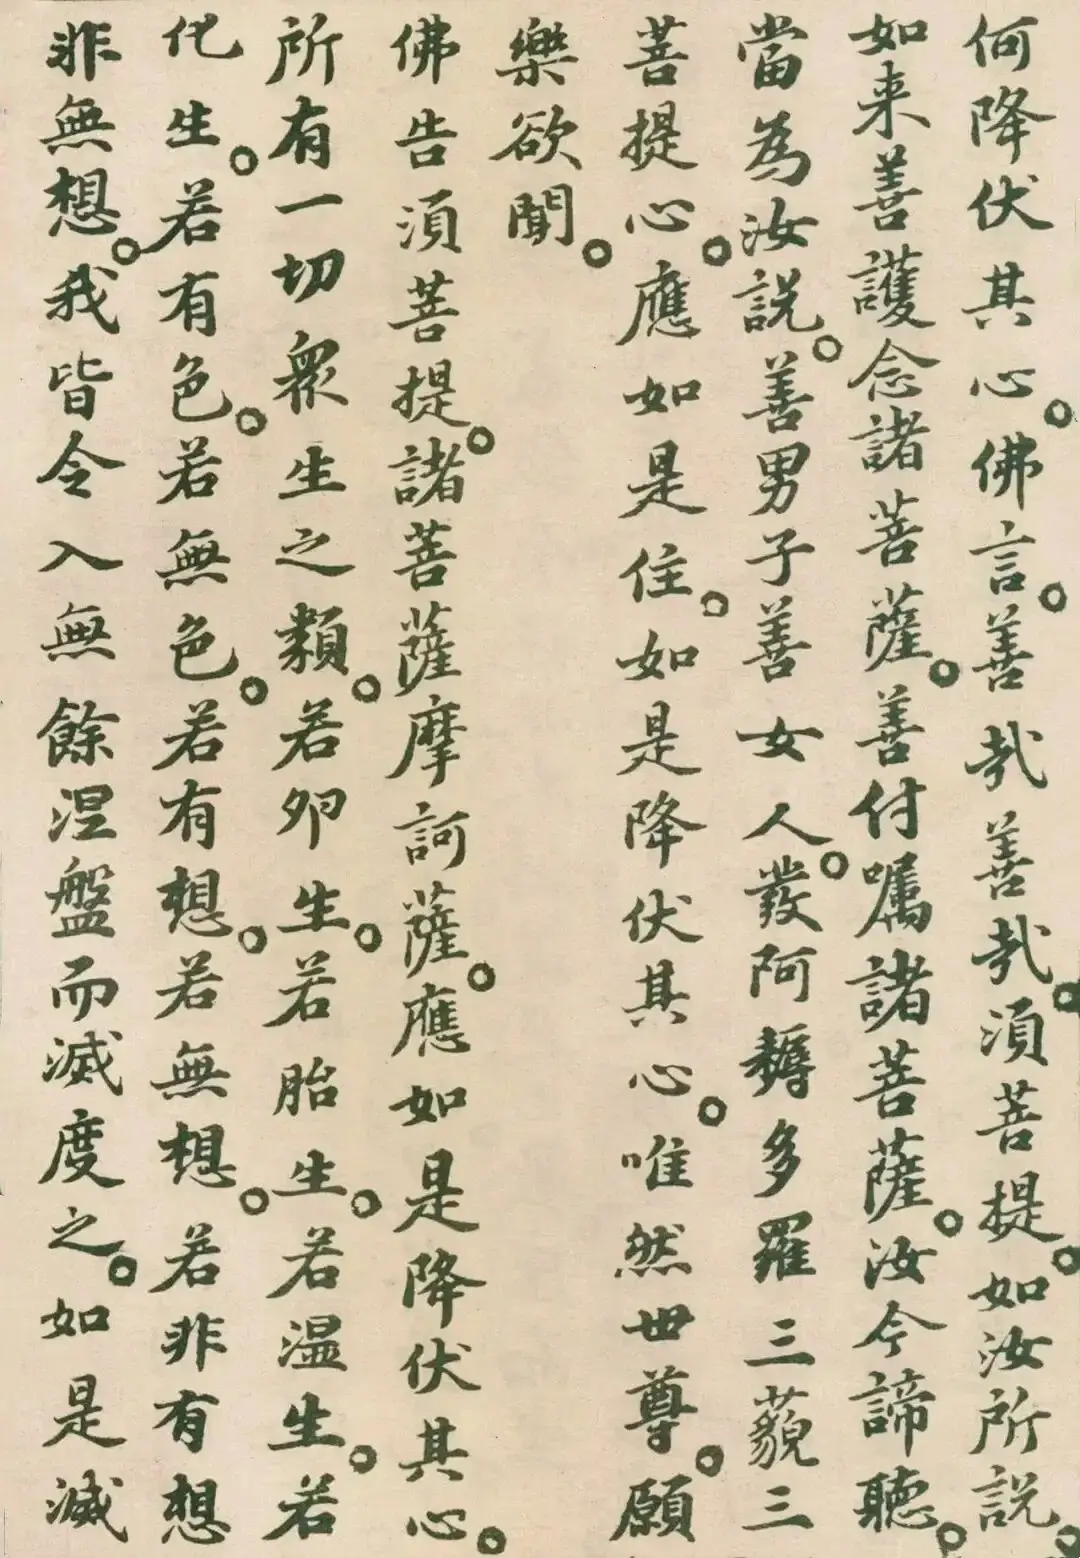 何降伏其心。佛言。善哉善哉。須菩提。如汝所說。
如来善護念諸菩薩。善付嘱諸菩薩。汝今諦聽。
當為汝説。善男子善女人。發阿耨多羅三藐三
菩提心。應如是住。如是降伏其心。唯然世尊。願
樂欲聞。
佛告須菩提。諸菩薩摩訶薩。應如是降伏其心。
所有一切眾生之類。若卵生。若胎生。若温生。若
化生。若有色。若無色。若有想。若無想。若非有想
非無想。我皆令入無餘涅盤而滅度之。如是滅